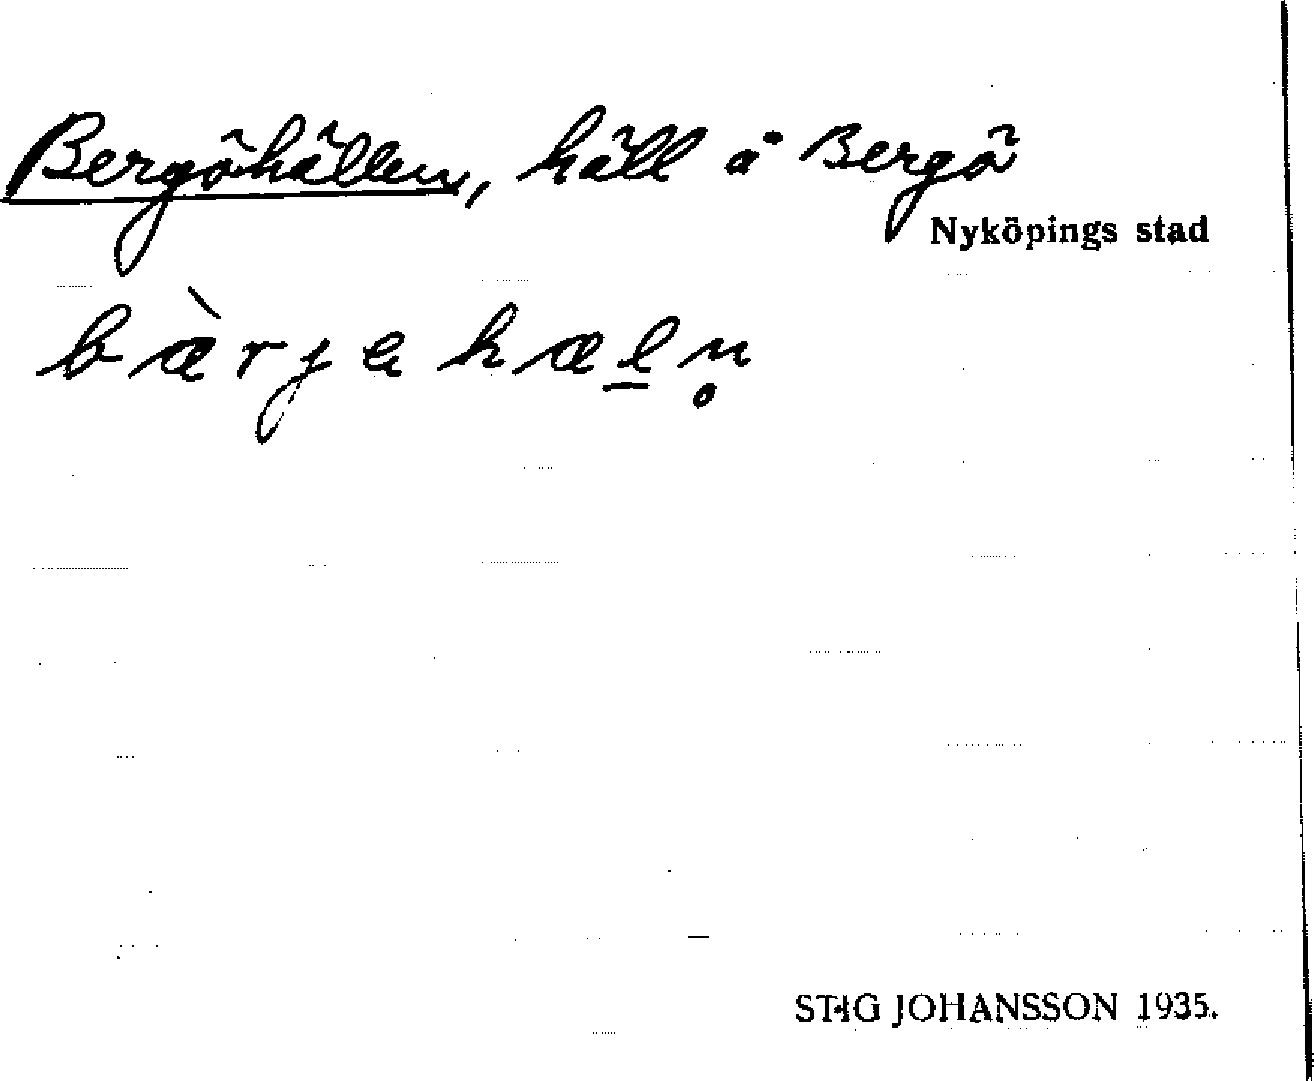 Bergöhällen, häll å Bergö
Nyköpings stad
bæ̀rjehæl̲n̥
STIG JOHANSSON 1935.